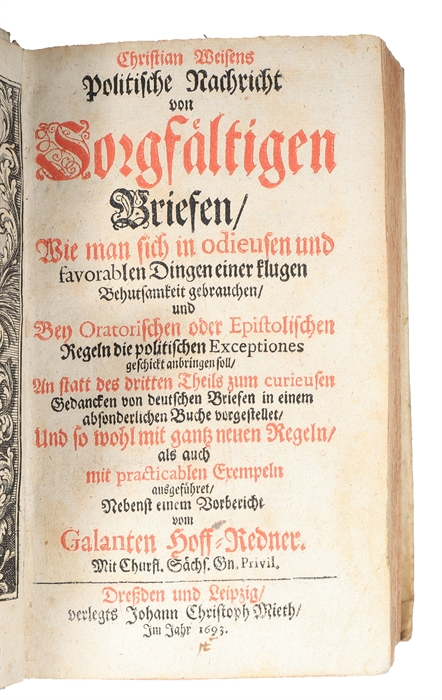 Christian Weisens
Politische Nachricht
von
Sorgfältigen
Briefen/
Wie man sich in odieusen und
favorablen Dingen einer klugen
Behutsamkeit gebrauchen/
und
Bey Oratorischen oder Epistolischen
Regeln die politischen Exceptiones
geschickt anbringen soll/
An statt des dritten Theils zum curieusen
Gedancken von deutschen Briefen in einem
absonderlichen Buche vorgestellet/
Und so wohl mit gantz neuen Regeln/
als auch
mit practicablen Exempeln
ausgeführet/
Nebenst einem Vorbericht
vom
Galanten Hoff-Redner.
Mit Churfl. Sächs. Gn. Privil.
Dreßden und Leipzig/
verlegts Johann Christoph Mieth/
Im Jahr 1693.